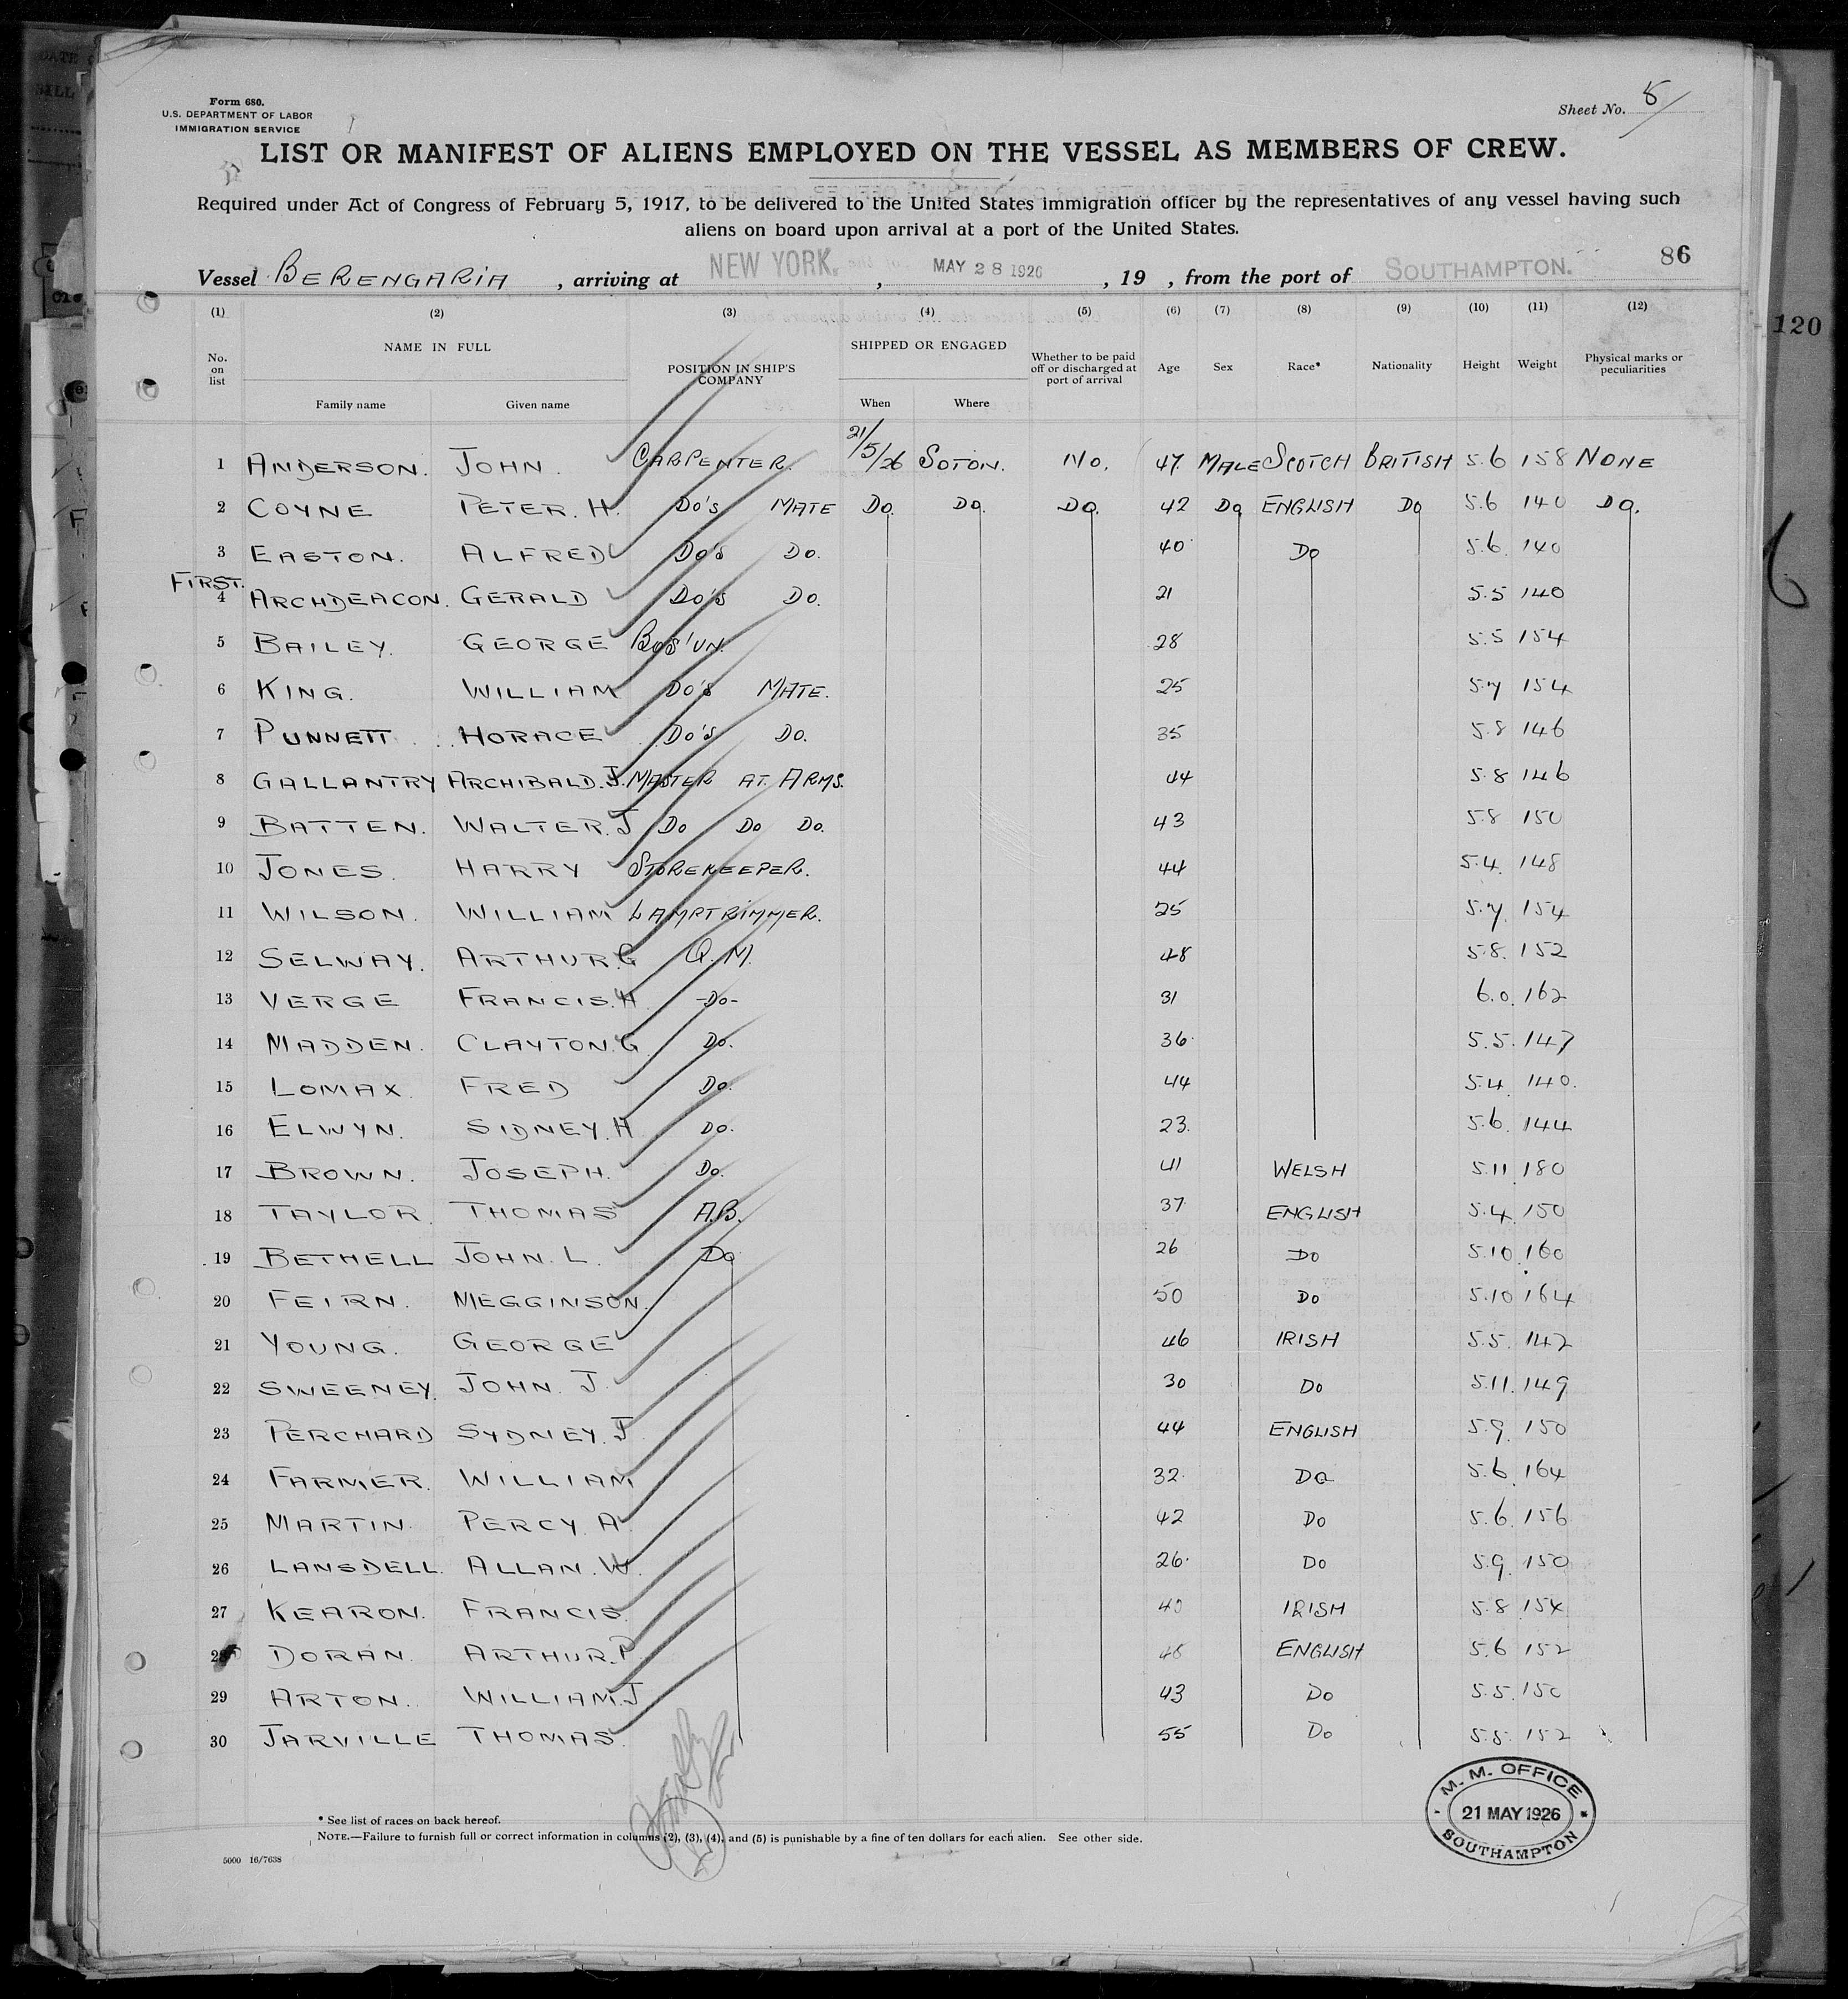 Form 680.
U.S. DEPARTMENT OF LABOR
IMMIGRATION SERVICE
Sheet No. 5
LIST OR MANIFEST OF ALIENS EMPLOYED ON THE VESSEL AS MEMBERS OF CREW.
Required under Act of Congress of February 5, 1917, to be delivered to the United States immigration officer by the representatives of any vessel having such
aliens on board upon arrival at a port of the United States.
86
Vessel BERENGARIA, arriving at NEW YORK, MAY 28 1926, 19 , from the port of SOUTHAMPTON.
120
(1) (2) (3) (4) (5) (6) (7) (8) (9) (10) (11) (12)
No. on list NAME IN FULL POSITION IN SHIP'S COMPANY SHIPPED OR ENGAGED Whether to be paid off or discharged at port of arrival Age Sex Race* Nationality Height Weight Physical marks or peculiarities
Family name Given name When Where
1 ANDERSON. JOHN. CARPENTER. 21/5/26 SOTON. No. 47. MALE SCOTCH BRITISH 5.6 158 NONE
2 COYNE PETER. H. Do's MATE Do. Do. Do. 42 Do ENGLISH Do 5.6 140 Do.
3 EASTON. ALFRED Do's Do. 40 Do 5.6. 140
FIRST.
4 ARCHDEACON. GERALD Do's Do. 21 5.5 140
5 BAILEY. GEORGE BOS'UN. 28 5.5 154
6 KING. WILLIAM Do's MATE. 25 5.7 154
7 PUNNETT HORACE Do's Do. 35 5.8 146
8 GALLANTRY ARCHIBALD. J. MASTER AT. ARMS. 44 5.8 146
9 BATTEN. WALTER. J Do Do Do. 43 5.8 150
10 JONES. HARRY STOREKEEPER. 44 5.4. 148
11 WILSON. WILLIAM LAMPTRIMMER. 25 5.7. 154
12 SELWAY. ARTHUR. G Q. M. 48 5.8. 152
13 VERGE FRANCIS. H. -Do- 31 6.0. 162
14 MADDEN. CLAYTON. G. Do. 36. 5.5. 147
15 LOMAX. FRED Do. 44 5.4 140.
16 ELWYN. SIDNEY. H. Do. 23. 5.6. 144
17 BROWN. JOSEPH. Do. 41 WELSH 5.11 180
18 TAYLOR. THOMAS A.B. 37 ENGLISH 5.4. 150
19 BETHELL JOHN. L. Do 26 Do 5.10 160
20 FEIRN. MEGGINSON. 50 Do 5.10 164
21 YOUNG. GEORGE 46 IRISH 5.5. 142
22 SWEENEY. JOHN. J. 30 Do 5.11. 149
23 PERCHARD SYDNEY. J 44 ENGLISH 5.9. 150
24 FARMER. WILLIAM 32. Do 5.6. 164
25 MARTIN. PERCY. A. 42 Do 5.6. 156
26 LANSDELL. ALLAN. W. 26. Do 5.9. 150
27 KEARON. FRANCIS. 40 IRISH 5.8 154
28 DORAN. ARTHUR. P. 48 ENGLISH 5.6 152
29 ARTON. WILLIAM. J 43 Do 5.5. 150
30 JARVILLE THOMAS. 55 Do 5.5. 152
* See list of races on back hereof.
NOTE.—Failure to furnish full or correct information in columns (2), (3), (4), and (5) is punishable by a fine of ten dollars for each alien. See other side.
5000 16/7638
M. M. OFFICE
21 MAY 1926
SOUTHAMPTON